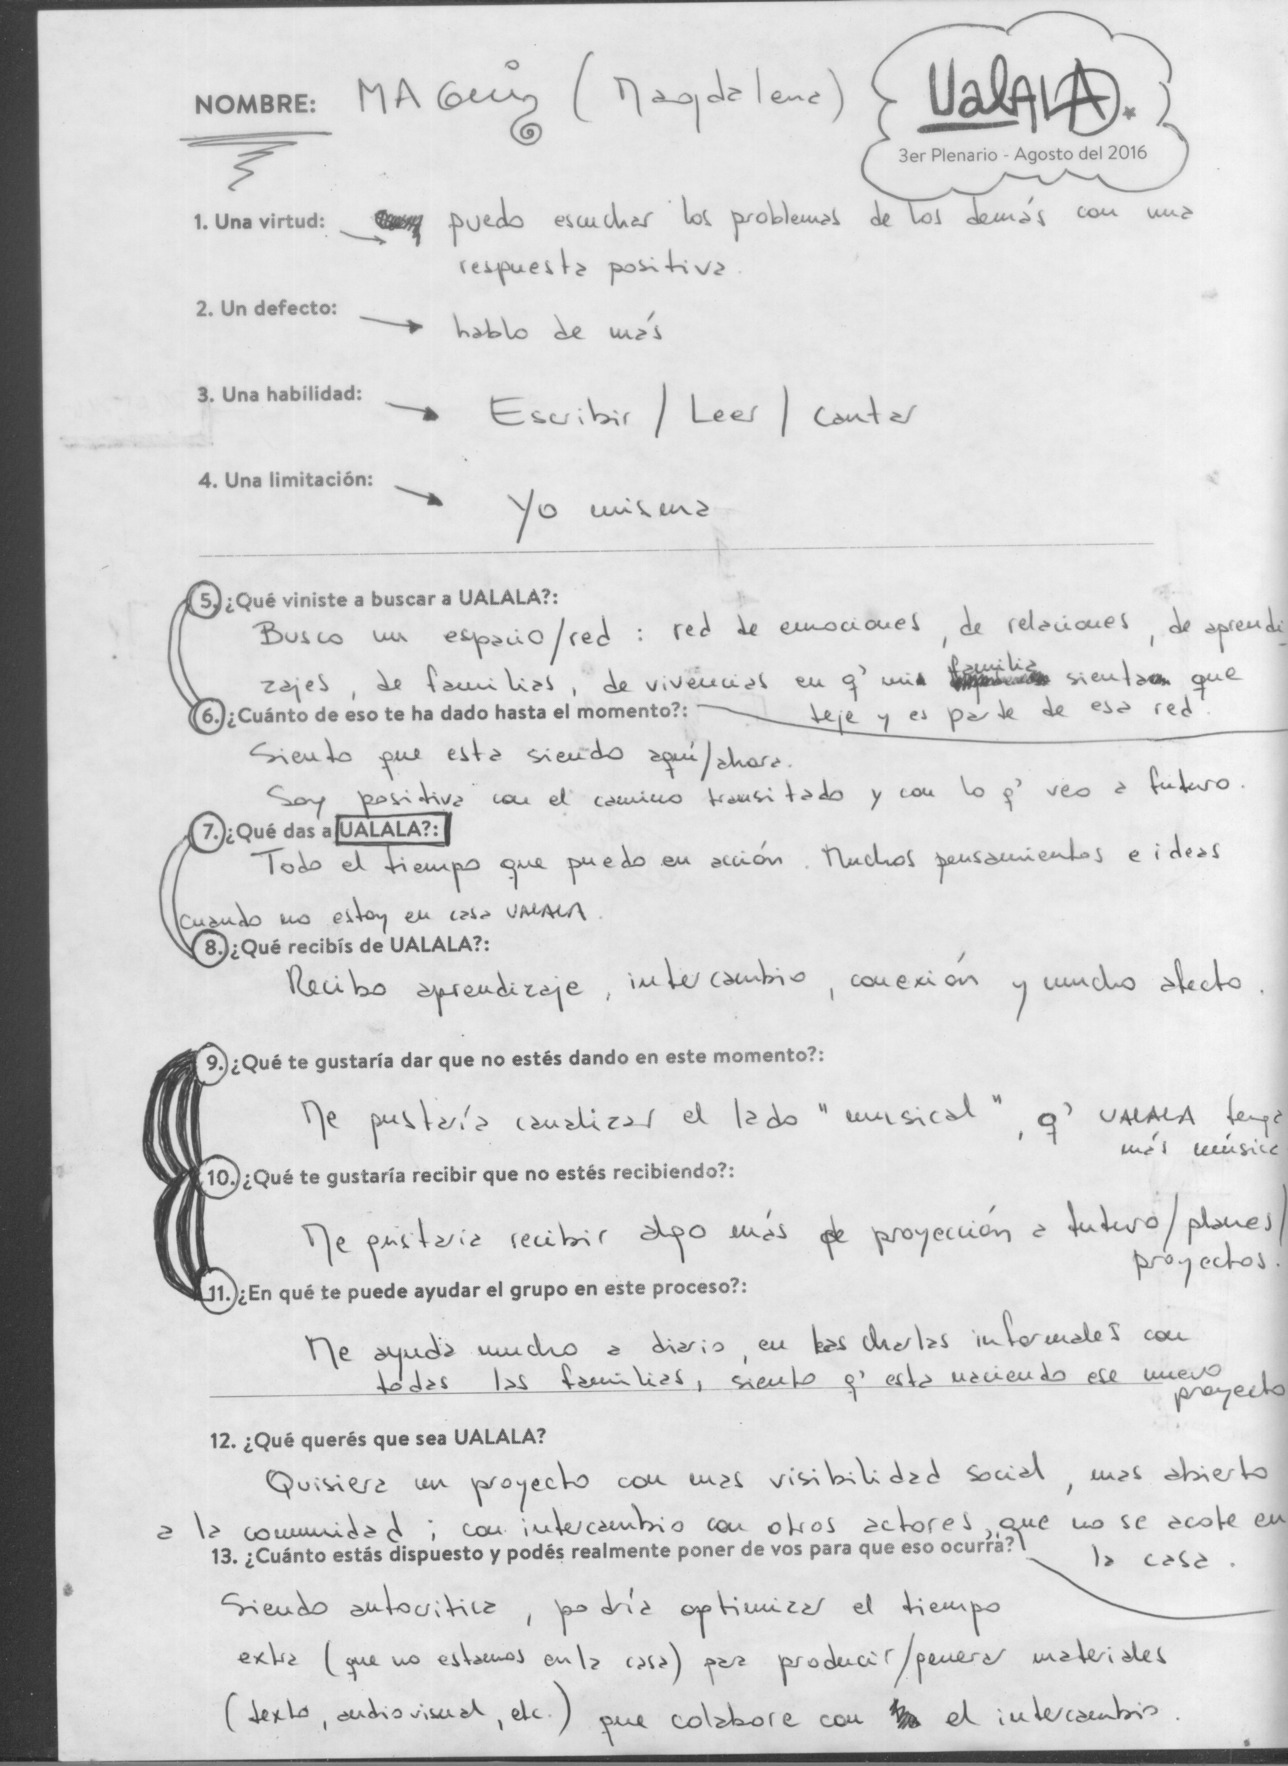 NOMBRE: MAGUI (Magdalena)
UALALA
3er Plenario - Agosto del 2016
1. Una virtud: puedo escuchar los problemas de los demás con una
respuesta positiva.
2. Un defecto:
hablo de más
3. Una habilidad:
Escribir / Leer / Cantar
4. Una limitación:
Yo misma
5. ¿Qué viniste a buscar a UALALA?:
Busco un espacio/red : red de emociones, de relaciones, de aprendi-
zajes, de familias, de vivencias en q' mi familia sienta que
teje y es parte de esa red.
6. ¿Cuánto de eso te ha dado hasta el momento?:
Siento que esta siendo aquí/ahora.
Soy positiva con el camino transitado y con lo q' veo a futuro.
7. ¿Qué das a UALALA?:
Todo el tiempo que puedo en acción. Muchos pensamientos e ideas
cuando no estoy en casa UALALA.
8. ¿Qué recibís de UALALA?:
Recibo aprendizaje, intercambio, conexión y mucho afecto.
9. ¿Qué te gustaría dar que no estés dando en este momento?:
Me gustaría canalizar el lado "musical", q' UALALA tenga
más música
10. ¿Qué te gustaría recibir que no estés recibiendo?:
Me gustaría recibir algo más de proyección a futuro/planes/
proyectos.
11. ¿En qué te puede ayudar el grupo en este proceso?:
Me ayuda mucho a diario, en las charlas informales con
todas las familias, siento q' esta naciendo ese nuevo
proyecto
12. ¿Qué querés que sea UALALA?
Quisiera un proyecto con mas visibilidad social, mas abierto
a la comunidad; con intercambio con otros actores, que no se acote en
la casa.
13. ¿Cuánto estás dispuesto y podés realmente poner de vos para que eso ocurra?
Siendo autocrítica, podría optimizar el tiempo
extra (que no estamos en la casa) para producir/generar materiales
(texto, audiovisual, etc.) que colabore con el intercambio.